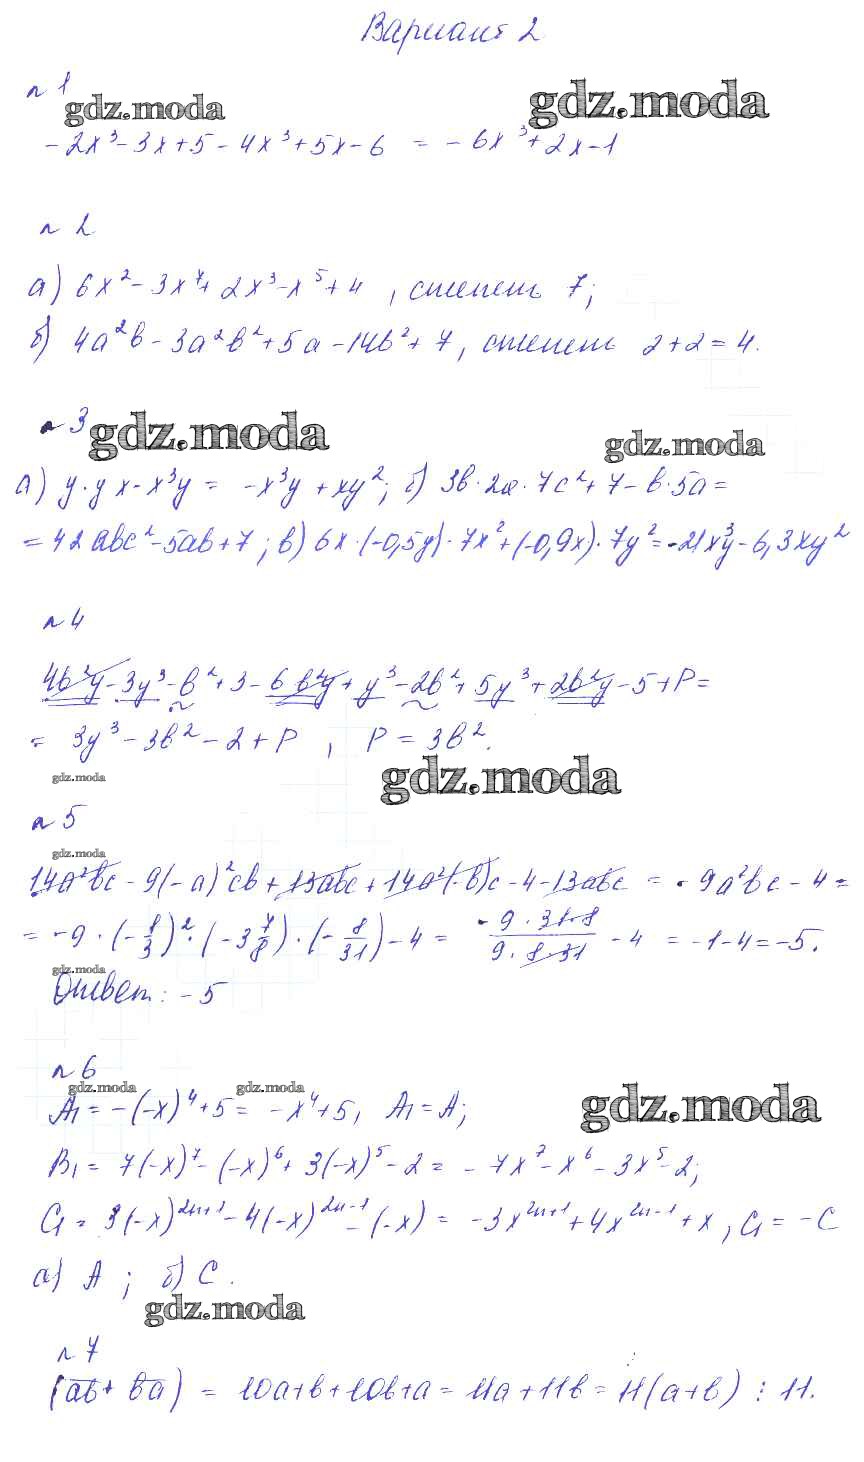 Вариант 2
n 1
gdz.moda gdz.moda
-2x³-3x+5-4x³+5x-6 = -6x³+2x-1
n 2
а) 6x²-3x⁷+2x³-x⁵+4, степень 7;
б) 4a²b-3a²b²+5a-14b²+7, степень 2+2=4.
n 3 gdz.moda gdz.moda
а) y·yx-x³y = -x³y+xy²; б) 3b·2a·7c²+7-b·5a=
=42abc²-5ab+7; в) 6x·(-0,5y)·7x²+(-0,9x)·7y²=-21x³y-6,3xy²
n 4
4b²y-3y³-b²+3-6b²y+y³-2b²+5y³+2b²y-5+P=
= 3y³-3b²-2+P, P=3b².
gdz.moda gdz.moda
n 5
gdz.moda
14a²bc-9(-a)²cb+13abc+14a²(-b)c-4-13abc = -9a²bc-4=
= -9·(-1/3)²·(-3 7/8)·(-8/31)-4 = -9·31·8/9·8·31 -4 = -1-4=-5.
gdz.moda
Ответ: -5
n 6
gdz.moda gdz.moda gdz.moda
A₁=-(-x)⁴+5= -x⁴+5, A₁=A;
B₁= 7(-x)⁷-(-x)⁶+3(-x)⁵-2= -7x⁷-x⁶-3x⁵-2;
C₁= 3(-x)²ⁿ⁺¹-4(-x)²ⁿ⁻¹-(-x)= -3x²ⁿ⁺¹+4x²ⁿ⁻¹+x, C₁=-C
а) A; б) C.
gdz.moda
n 7
(ab+ba) = 10a+b+10b+a= 11a+11b= 11(a+b) ⋮ 11.